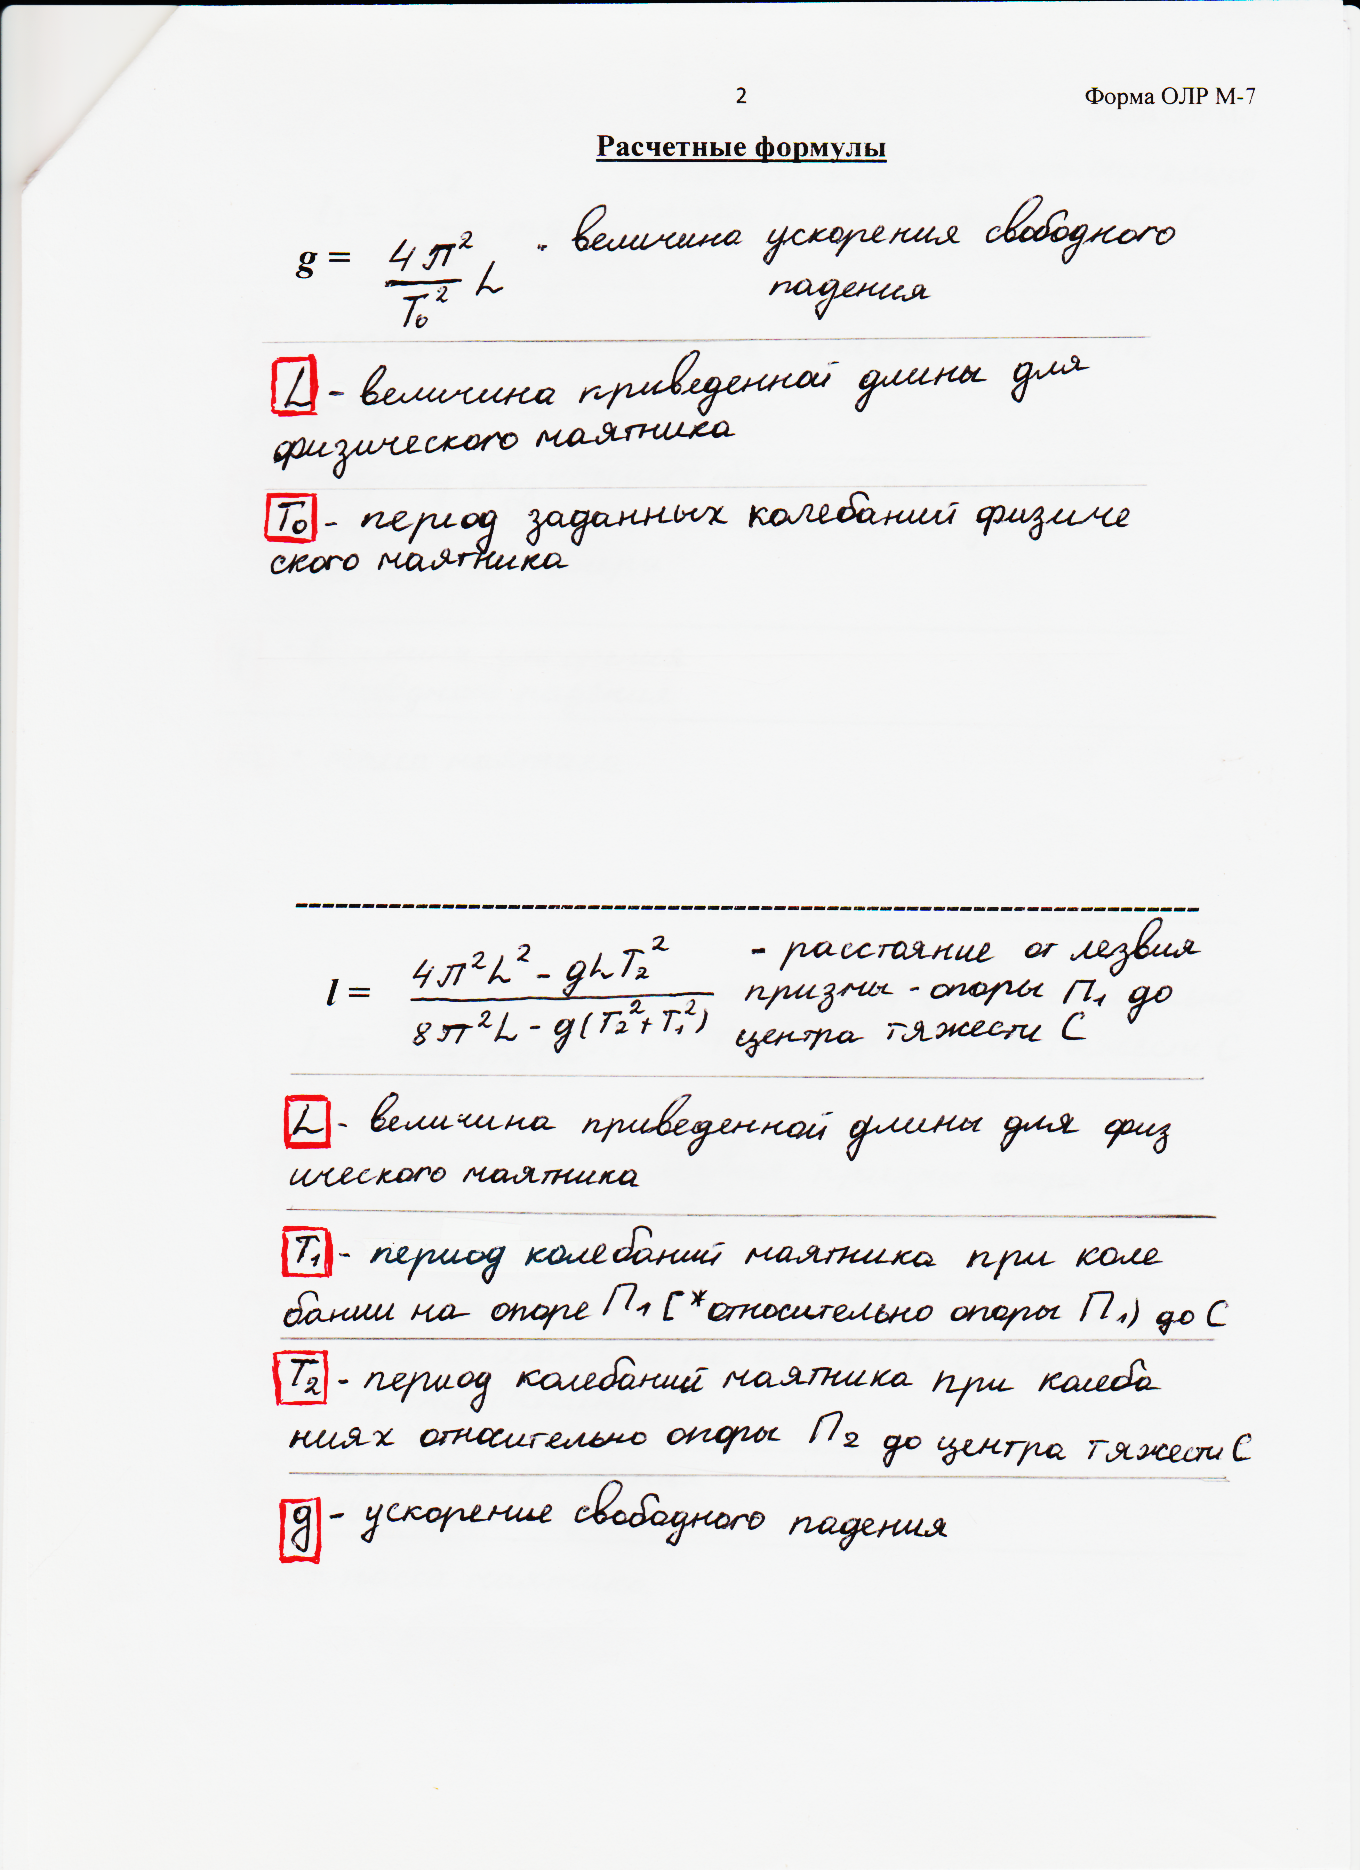 2
Форма ОЛР М-7
Расчетные формулы
g = 4π²/T₀² L - величина ускорения свободного
падения
L - величина приведенной длины для
физического маятника
T₀ - период заданных колебаний физиче
ского маятника
l = (4π²L² - gLT₂²)/(8π²L - g(T₂²+T₁²)) - расстояние от лезвия
призмы - опоры П₁ до
центра тяжести C
L - величина приведенной длины для физ
ического маятника
T₁ - период колебаний маятника при коле
бании на опоре П₁ (*относительно опоры П₁) до C
T₂ - период колебаний маятника при колеба
ниях относительно опоры П₂ до центра тяжести C
g - ускорение свободного падения